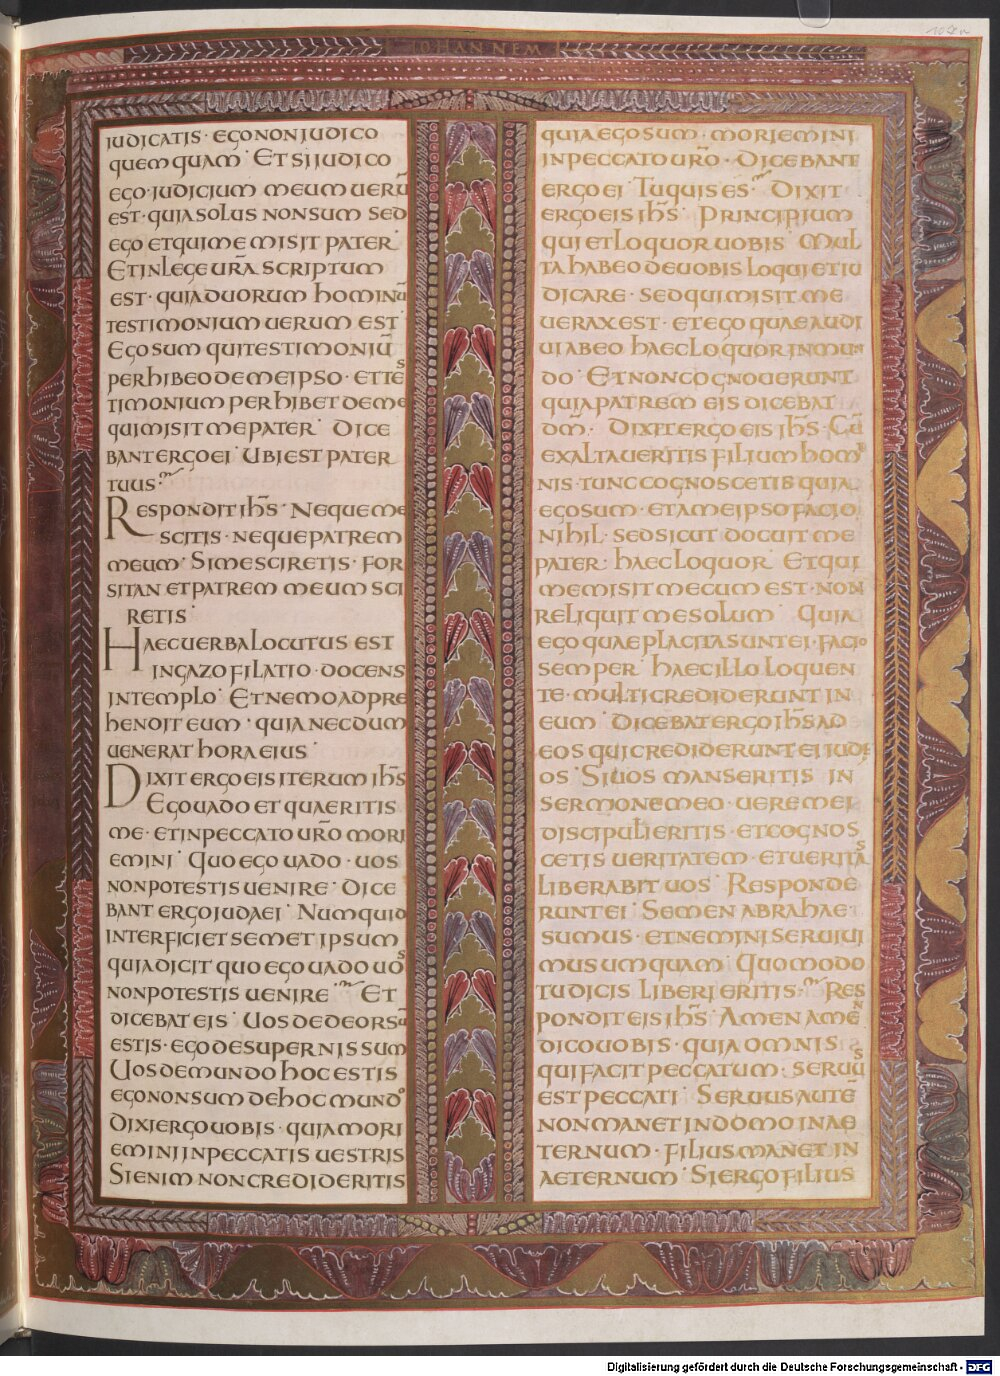 IOHANNEM
IUDICATIS · EGO NON IUDICO
QUEMQUAM · ET SI IUDICO
EGO · IUDICIUM MEUM UERŪ
EST · QUIA SOLUS NON SUM SED
EGO ET QUI ME MISIT PATER ·
ET IN LEGE URĀ SCRIPTUM
EST · QUIA DUORUM HOMINŪ
TESTIMONIUM UERUM EST ·
EGO SUM QUI TESTIMONIŪ
PERHIBEO DE ME IPSO · ET TES
TIMONIUM PERHIBET DE ME
QUI MISIT ME PATER · DICE
BANT ERGO EI · UBI EST PATER
TUUS ·
RESPONDIT IHS̄ · NEQUE ME
SCITIS · NEQUE PATREM
MEUM · SI ME SCIRETIS · FOR
SITAN ET PATREM MEUM SCI
RETIS ·
HAEC UERBA LOCUTUS EST
IN GAZOFILATIO · DOCENS
IN TEMPLO · ET NEMO ADPRE
HENDIT EUM · QUIA NECDUM
UENERAT HORA EIUS ·
DIXIT ERGO EIS ITERUM IHS̄
EGO UADO ET QUAERITIS
ME · ET IN PECCATO URŌ MORI
EMINI · QUO EGO UADO · UOS
NON POTESTIS UENIRE · DICE
BANT ERGO JUDAEI · NUMQUID
INTERFICIET SEMET IPSUM
QUIA DICIT QUO EGO UADO UOS
NON POTESTIS UENIRE · ET
DICEBAT EIS · UOS DE DEORSU
ESTIS · EGO DE SUPERNIS SUM
UOS DE MUNDO HOC ESTIS
EGO NON SUM DE HOC MUNDO
DIXI ERGO UOBIS · QUIA MORI
EMINI IN PECCATIS UESTRIS
SI ENIM NON CREDIDERITIS
QUIA EGO SUM · MORIEMINI
IN PECCATO URŌ · DICEBANT
ERGO EI · TU QUIS ES · DIXIT
ERGO EIS IHS̄ · PRINCIPIUM
QUI ET LOQUOR UOBIS MUL
TA HABEO DE UOBIS LOQUI ET IU
DICARE · SED QUI MISIT ME
UERAX EST · ET EGO QUAE AUDI
UI AB EO HAEC LOQUOR IN MUN
DO · ET NON COGNOUERUNT
QUIA PATREM EIS DICEBAT
DM̄ · DIXIT ERGO EIS IHS̄ · CŪ
EXALTAUERITIS FILIUM HOMI
NIS · TUNC COGNOSCETIS QUIA
EGO SUM · ET A ME IPSO FACIO
NIHIL · SED SICUT DOCUIT ME
PATER · HAEC LOQUOR · ET QUI
ME MISIT MECUM EST · NON
RELIQUIT ME SOLUM · QUIA
EGO QUAE PLACITA SUNT EI · FACIO
SEMPER · HAEC ILLO LOQUEN
TE · MULTI CREDIDERUNT IN
EUM · DICEBAT ERGO IHS̄ AD
EOS QUI CREDIDERUNT EI IUDE
OS · SI UOS MANSERITIS IN
SERMONE MEO · UERE MEI
DISCIPULI ERITIS · ET COGNOS
CETIS UERITATEM · ET UERITAS
LIBERABIT UOS · RESPONDE
RUNT EI · SEMEN ABRAHAE
SUMUS · ET NEMINI SERUIUI
MUS UMQUAM · QUOMODO
TU DICIS LIBERI ERITIS · RES
PONDIT EIS IHS̄ · AMEN AMEN
DICO UOBIS · QUIA OMNIS
QUI FACIT PECCATUM · SERUUS
EST PECCATI · SERUUS AUTĒ
NON MANET IN DOMO IN AE
TERNUM · FILIUS MANET IN
AETERNUM · SI ERGO FILIUS
Digitalisierung gefördert durch die Deutsche Forschungsgemeinschaft · DFG